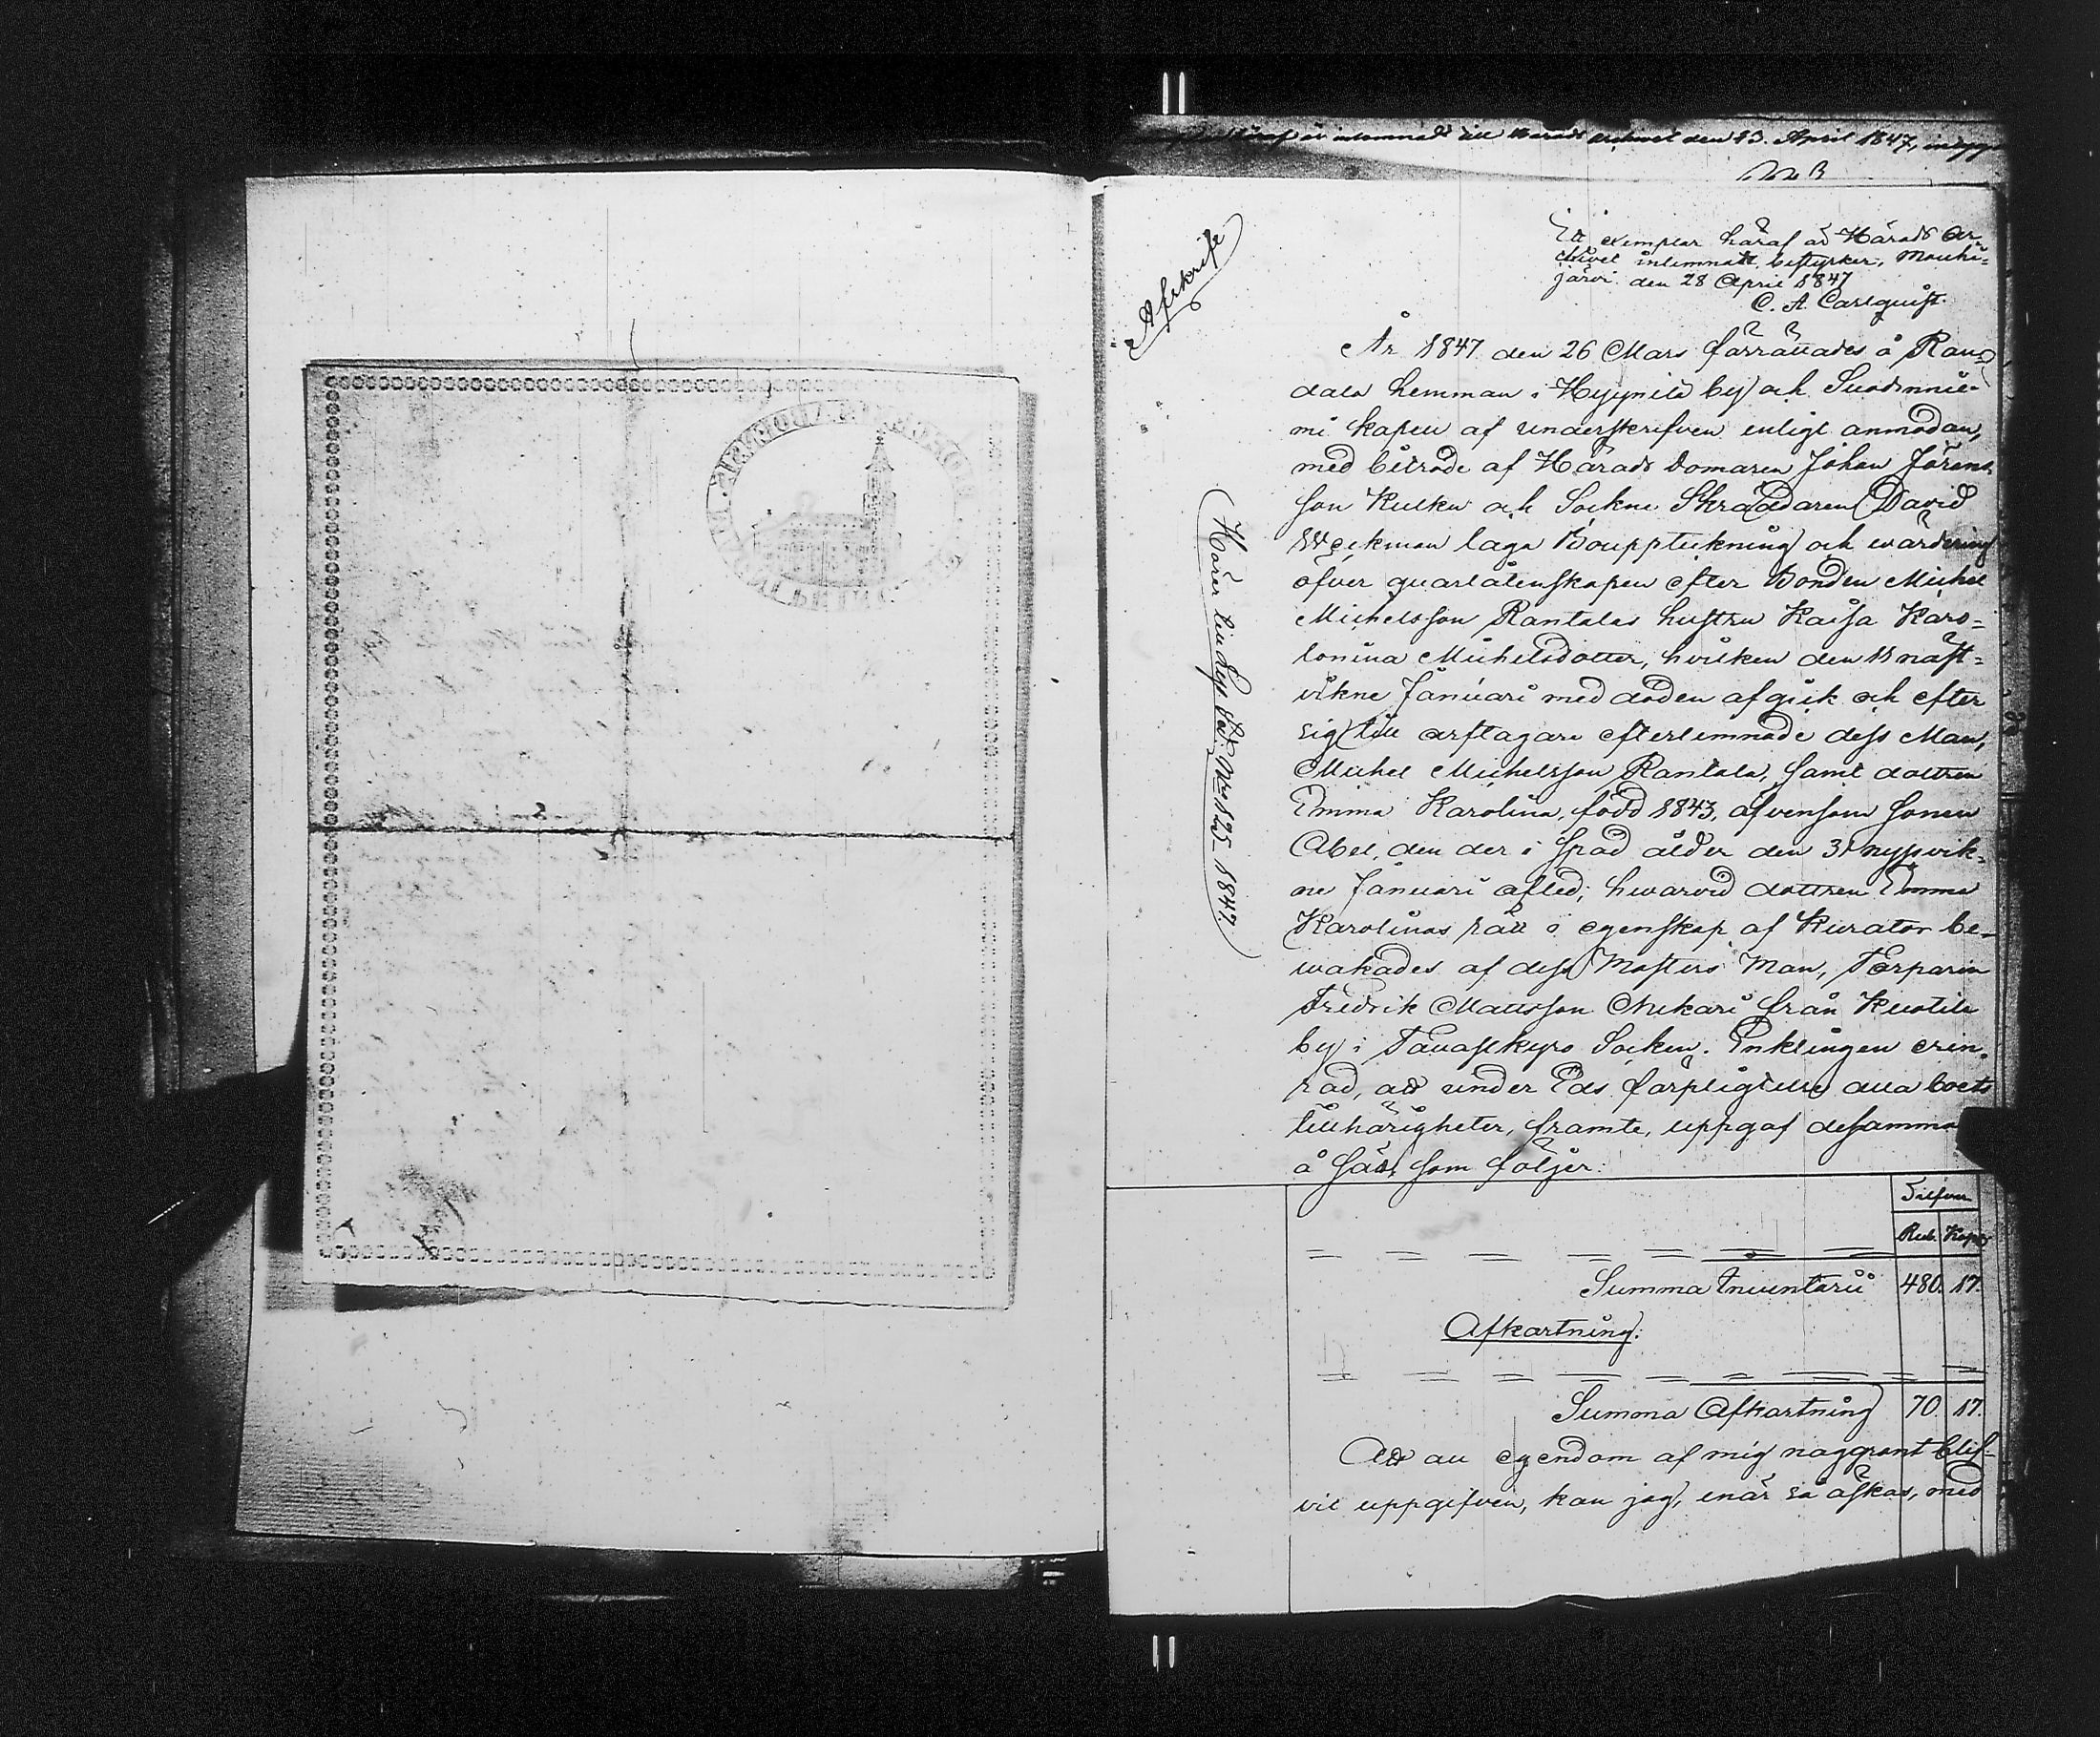 är inlemnadt till Härads Archivet den 23. April 1847,
Afskrift
Ett exemplar häraf ad Härads Ar-
chivet inlemnadt, bestyrker, Mouhi-
järvi den 28 April 1847
C. A. Carlquist.
År 1847 den 26 Mars förrättades å Ran-
dala hemman i Hyynilä by och Suodennie-
mi kapell af underskrifven enligt anmodan,
med biträde af Härads Domaren Johan Jöräns-
son Kulku och Sockne Skräddaren David
Weckman laga Boupptekning och wärdering
öfver quarlåtenskapen efter Bonden Michel
Michelsson Rantalas hustru Kaisa Karo-
lonina Michelsdotter, hvilken den 11 näst-
vikne Januari med döden afgick och efter
sig till arftagare efterlemnade dess Man,
Michel Michelsson Rantala, samt dottren
Emma Karolina, född 1843, äfvensom sonen
Abel, den der i späd ålder den 31 nyssvik-
ne Januari afled; hvarvid dottren Emma
Karolinas rätt i egenskap af Kurator be-
wakades af dess Mosters Man, Torparen
Fredrik Mattsson Nukari från Kustila
by i Tavastkyro Socken. Enklingen erin-
rad, att under Eds förpligtelse alla boets
tillhörigheter, framte, uppgaf desamma
å sätt som följer:
Hörer till Exp. Sed. No 125 1847.
Silfver
Rub. Kop.
Summa Inventarii 480. 17.
Afkortning:
Summa Afkortning 70. 17.
Att all egendom af mig noggrant blif-
vit uppgifven, kan jag, enär så äskas, med